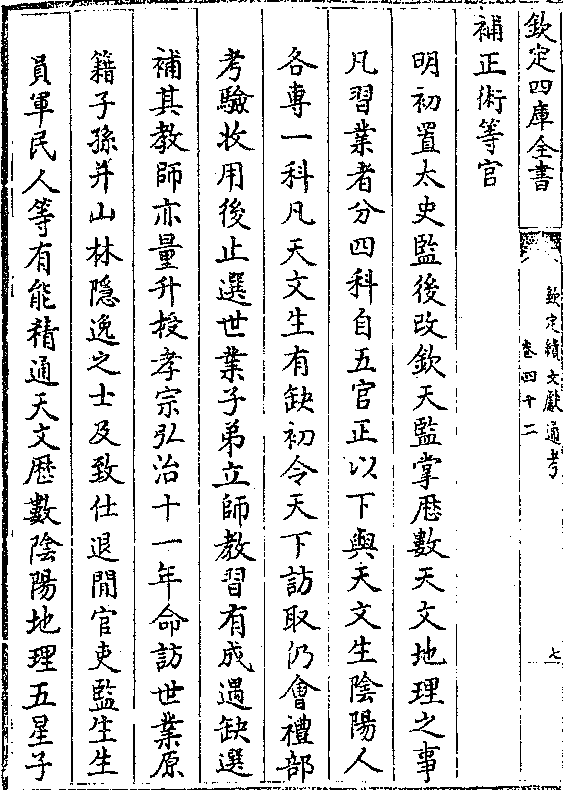 欽定四庫全書
欽定續文獻通考
卷四十二
七
補正術等官
明初置太史監後改欽天監掌厯數天文地理之事
凡習業者分四科自五官正以下與天文生陰陽人
各專一科凡天文生有缺初令天下訪取仍會禮部
考驗收用後止選世業子弟立師教習有成遇缺選
補其教師亦量升授孝宗弘治十一年命訪世業原
籍子孫并山林隱逸之士及致仕退閒官吏監生生
員軍民人等有能精通天文厯數陰陽地理五星子